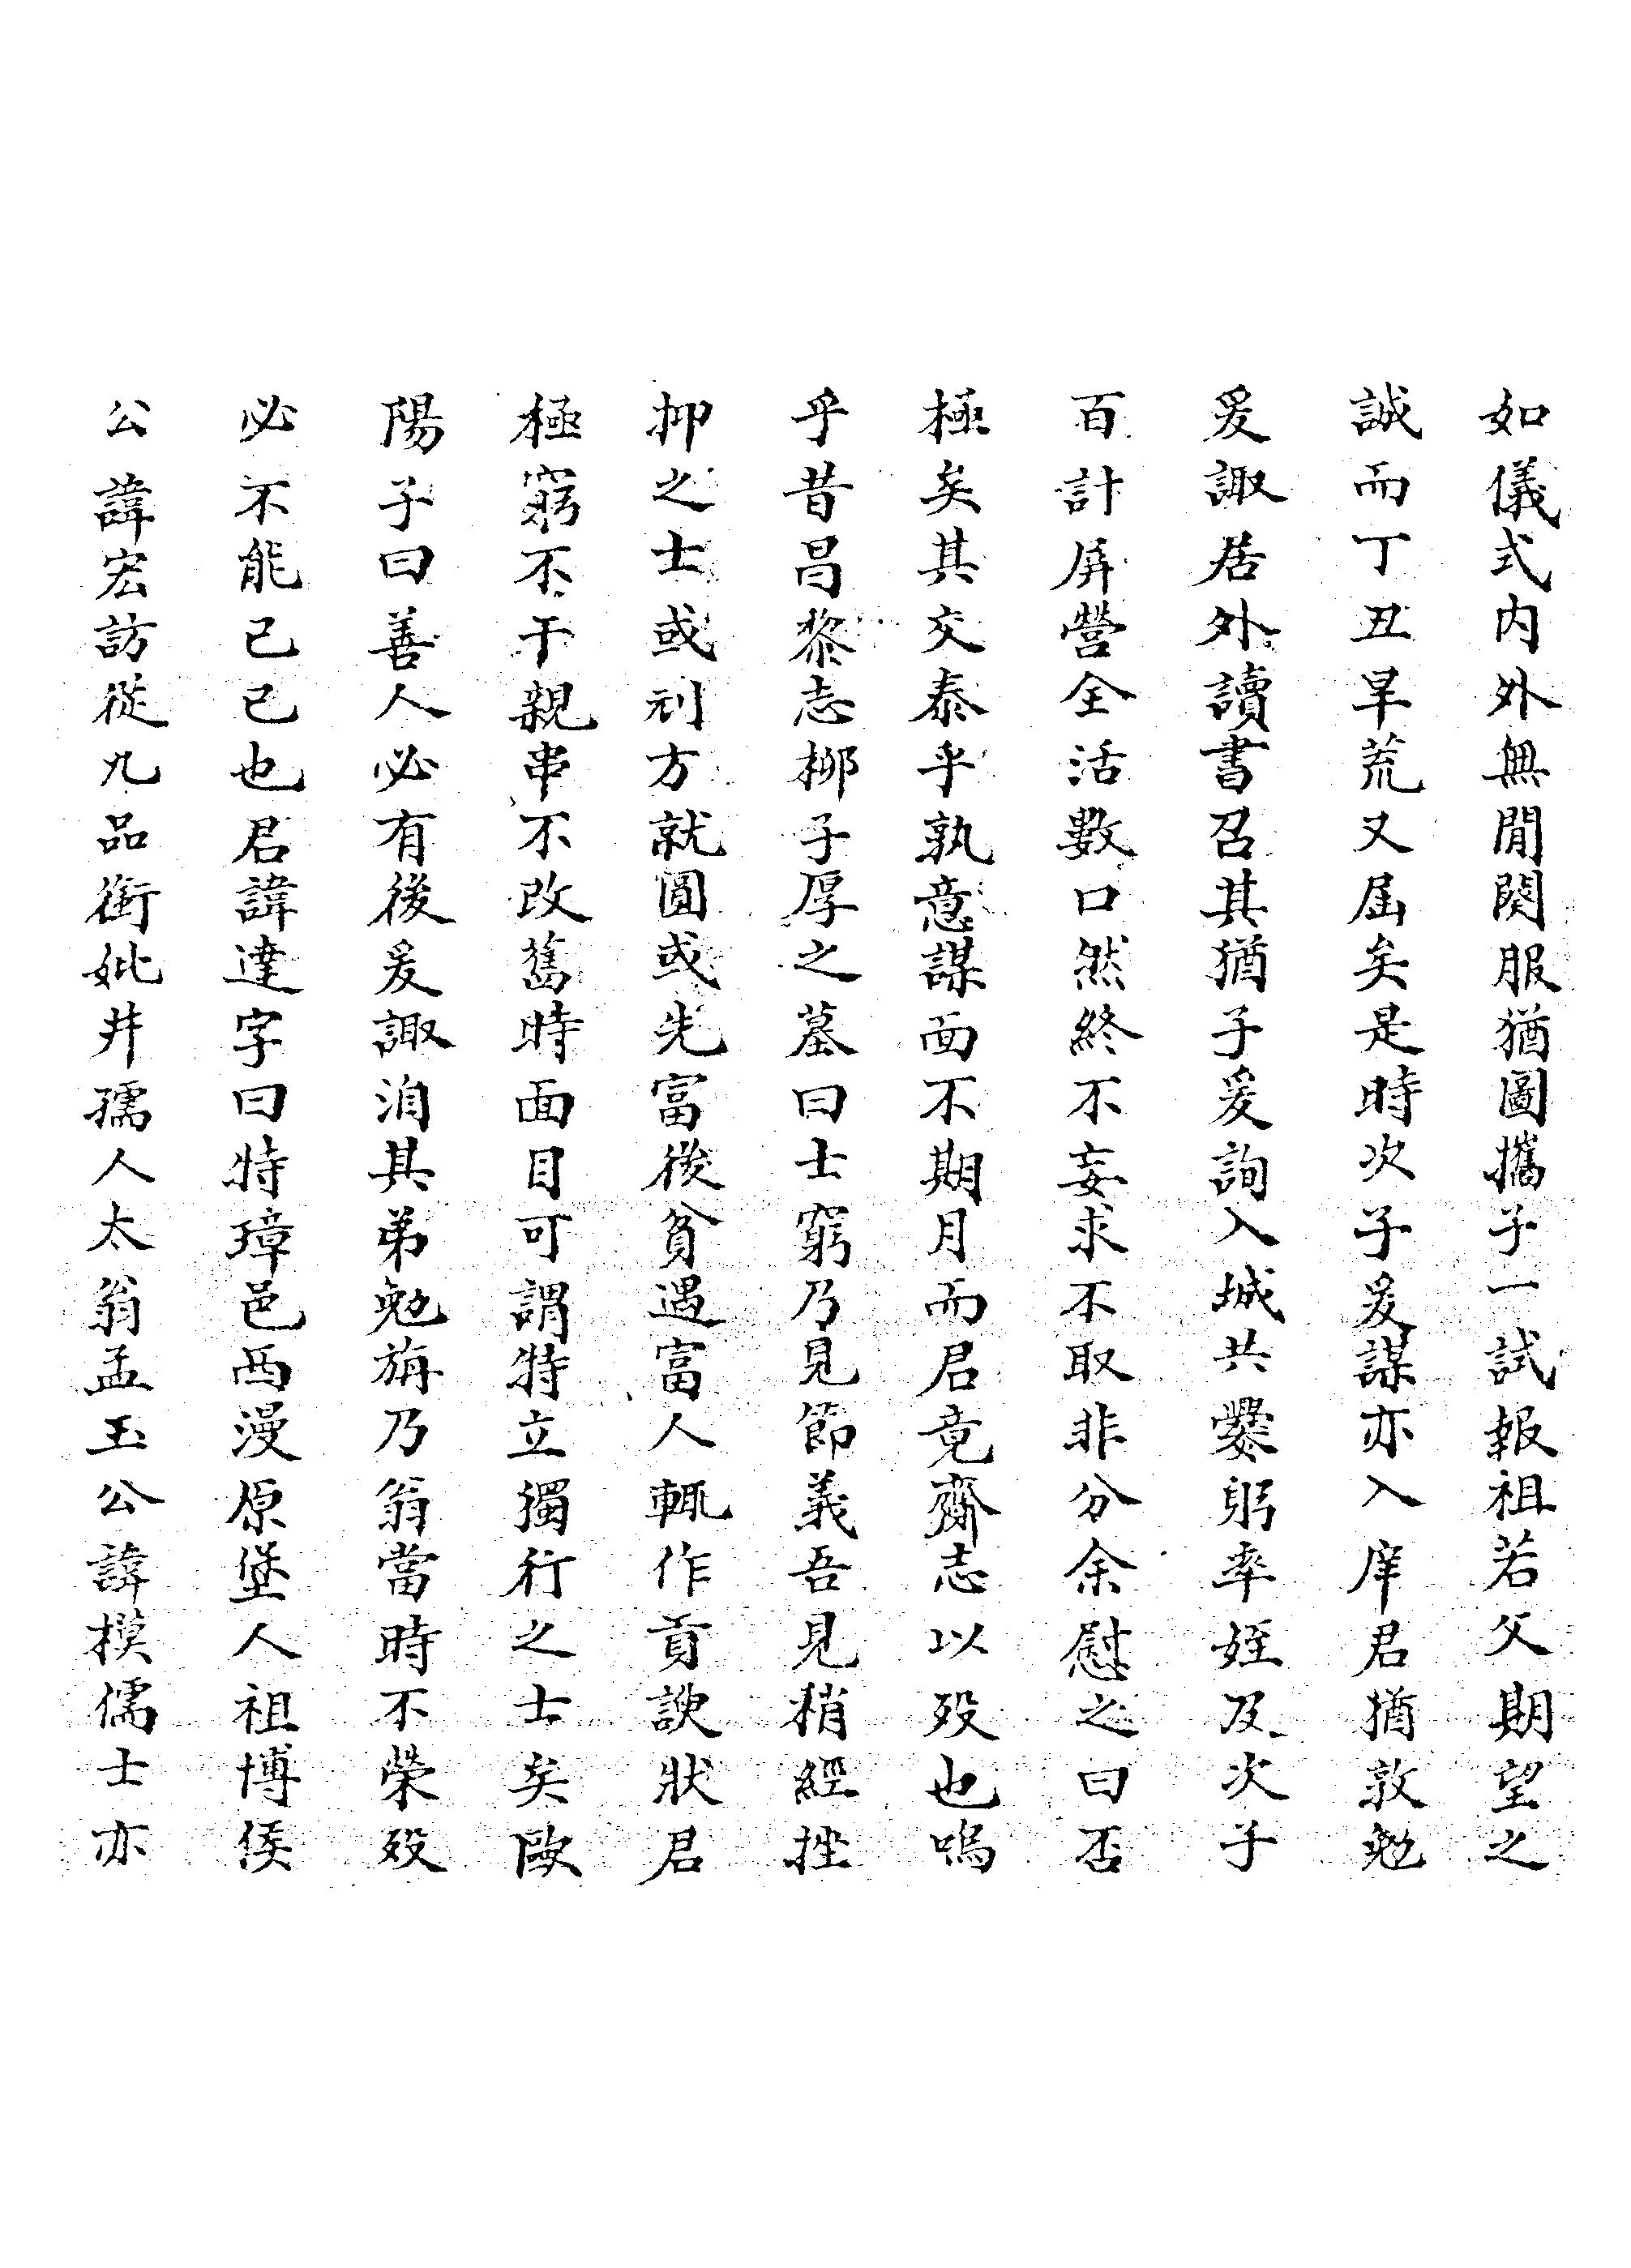 如儀式内外無閒閡服猶圖攜子一試報祖若父期望之
誠而丁丑旱荒又屆矣是時次子爰謀亦入庠君猶敦勉
爰諏居外讀書召其猶子爰詢入城共爨躬率姪及次子
百計屏營全活數口然終不妄求不取非分余慰之曰否
極矣其交泰乎孰意謀面不期月而君竟齎志以歿也嗚
乎昔昌黎志柳子厚之墓曰士窮乃見節義吾見稍經挫
抑之士或刓方就圓或先富後貧遇富人輒作貢諛狀君
極窮不干親串不改舊時面目可謂特立獨行之士矣歐
陽子曰善人必有後爰諏洎其弟勉旃乃翁當時不榮歿
必不能已已也君諱達字曰特璋邑西漫原堡人祖博侯
公諱宏訪從九品銜妣井孺人太翁孟玉公諱撲儒士亦